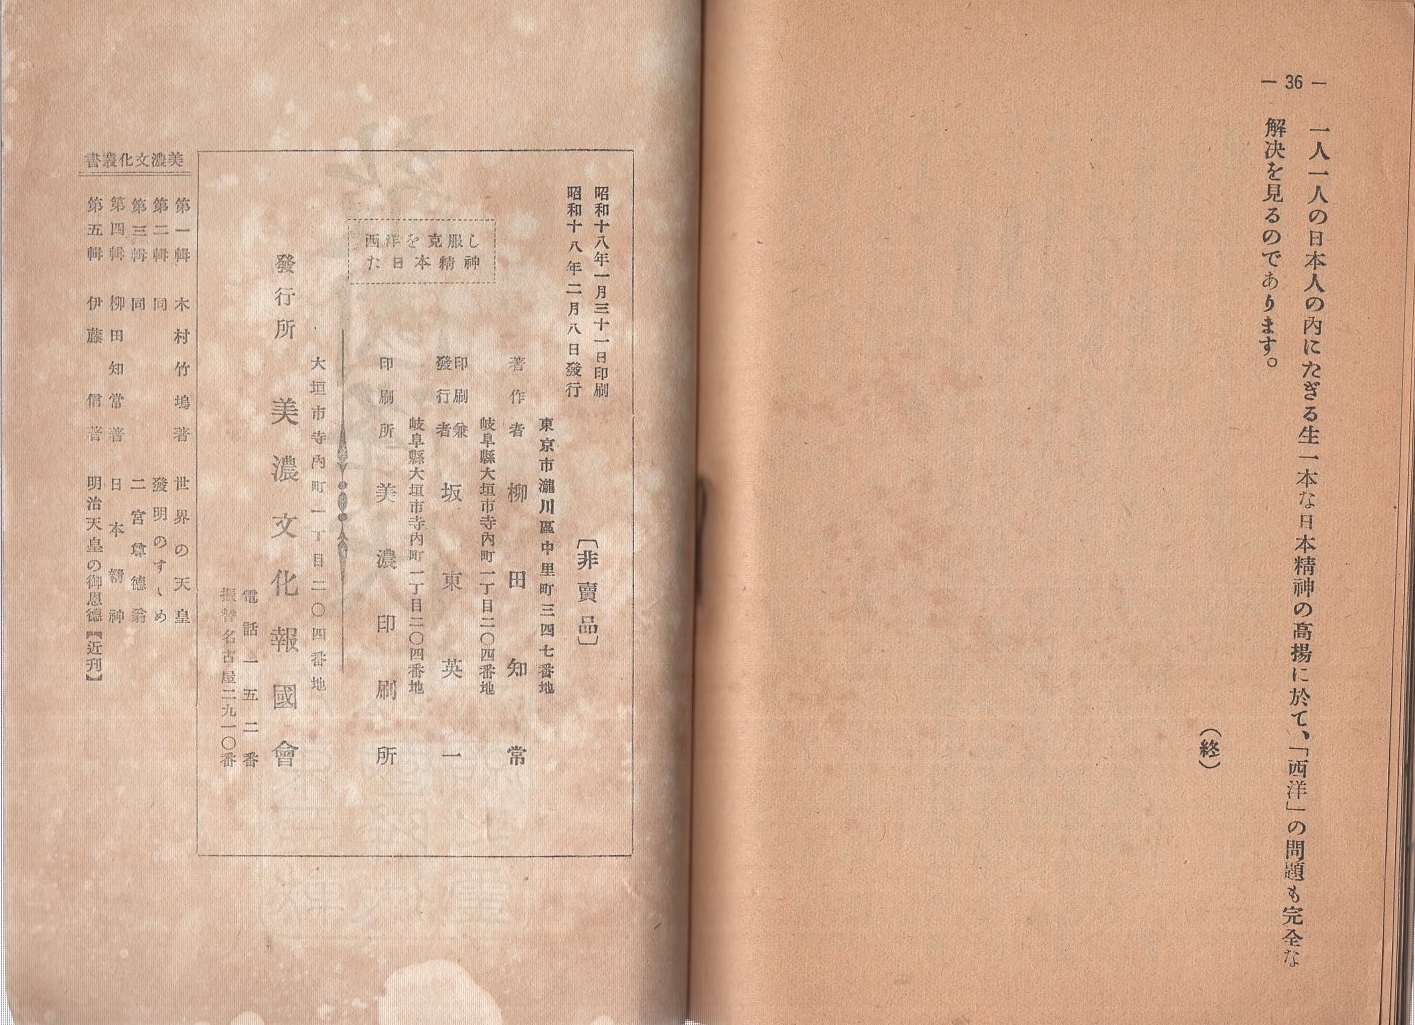 — 36 —
一人一人の日本人の內にたぎる生一本な日本精神の高揚に於て、「西洋」の問題も完全な
解決を見るのであります。
（終）
昭和十八年一月三十一日印刷
昭和十八年二月八日發行
〔非賣品〕
西洋を克服し
た日本精神
東京市瀧川區中里町三四七番地
著作者 柳田知常
岐阜縣大垣市寺內町一丁目二〇四番地
印刷兼
發行者 坂東英一
岐阜縣大垣市寺內町一丁目二〇四番地
印刷所 美濃印刷所
大垣市寺內町一丁目二〇四番地
發行所 美濃文化報國會
電話一五二番
振替名古屋二九一〇番
美濃文化叢書
第一輯 木村竹塢著 世界の天皇
第二輯 同 發明のすゝめ
第三輯 同 二宮尊德翁
第四輯 柳田知常著 日本精神
第五輯 伊藤信著 明治天皇の御恩德【近刊】